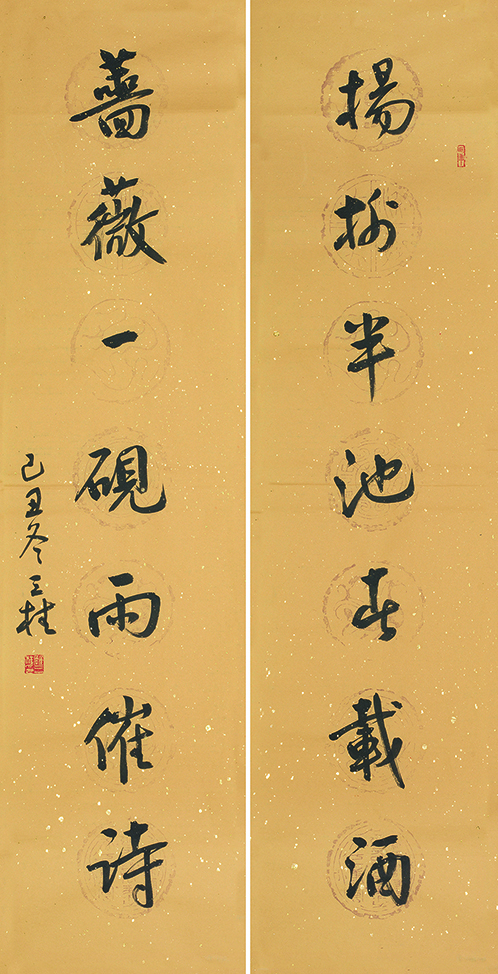 楊柳半池春載酒
薔薇一硯雨催詩
己丑冬三桂